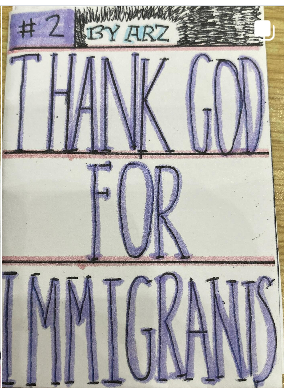 #2 BY ARZ
THANK GOD
FOR
IMMIGRANTS